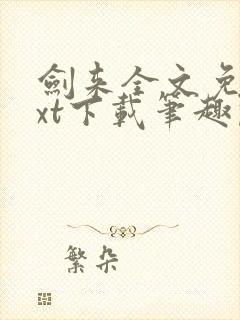 劍来全文免
xt下載筆趣
繁朵